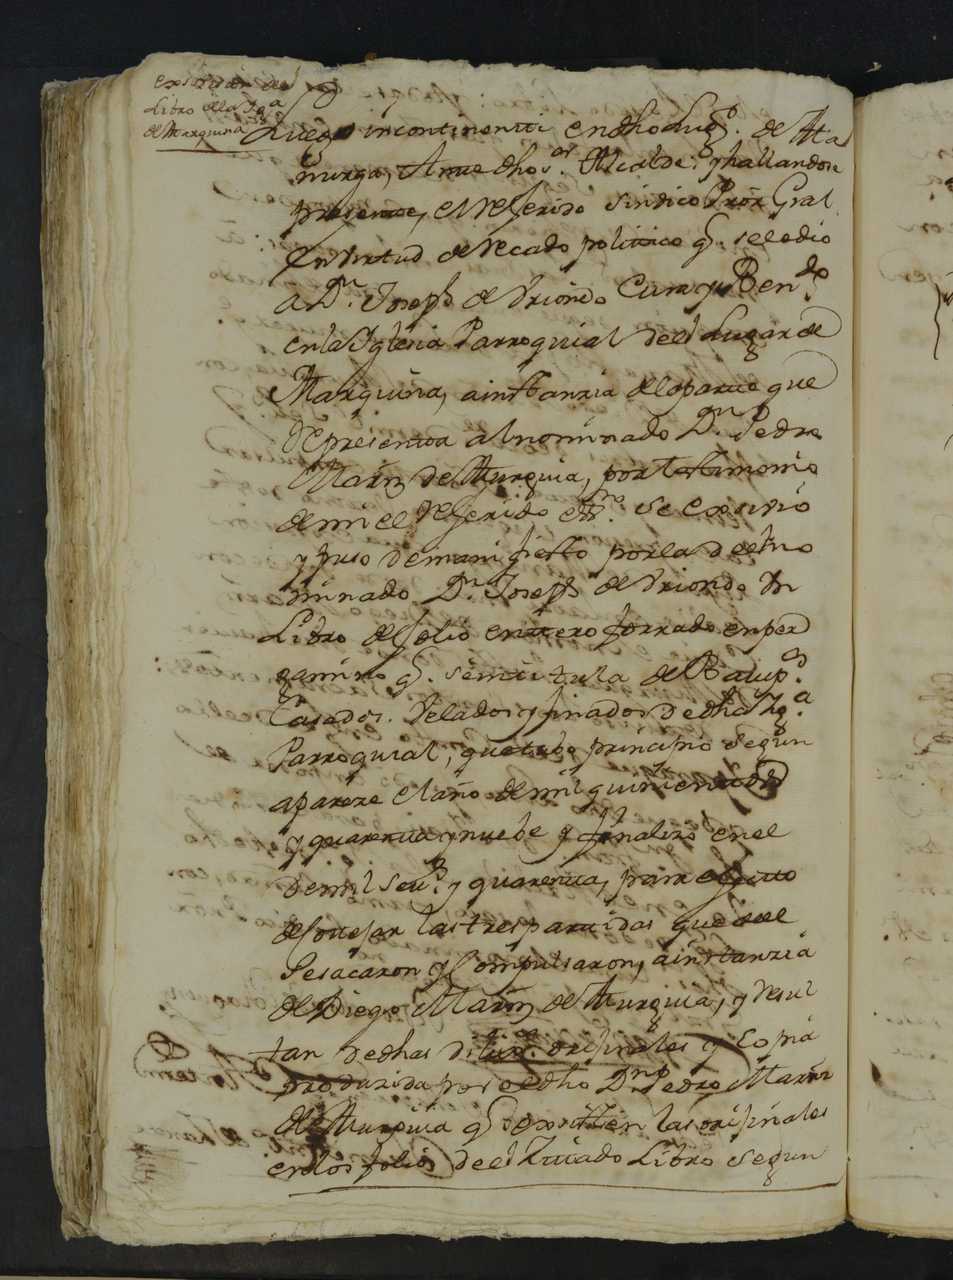 Exsivision del
Libro de la Ygª
de Marquina
Luego incontinenti en dho Lugr. de Ma
nurga, Ante dho Sor. Alcalde, y hallandose
presente, el referido Sindico Pror Gral
En virtud de recado politico q. se le dio
a Dn. Joseph de Vriondo Cura y Bendo
en la Yglesia Parroquial del Lugar de
Marquina, a instanzia de la parte que
representa al nominado Dn. Pedro
Marn de Murguia, por testimonio
de mi el referido essno. se exsivio
y puso de manifiesto por la de el no
minado Dn. Joseph de Vriondo Vn
Libro de folio entero forrado en per
gamino q. se intitula de Bautpdos.
Casados. Velados y finados de dha Ygª.
Parroquial, que tubo principio segun
apareze el año de mil quinientos
y quarenta y nuebe y finalizo en el
de mil setz. y quarenta, para efecto
de cotejar las tres partidas que de el
se sacaron y Compulsaron, a instanzia
de Diego Marn de Murguia, y resul
tan de dhas diligas. orijinales y Copia
produzida por el dho Dn. Pedro Marn
de Murguia q. exsisten las orijinales
en los folios de el Zitado Libro segun